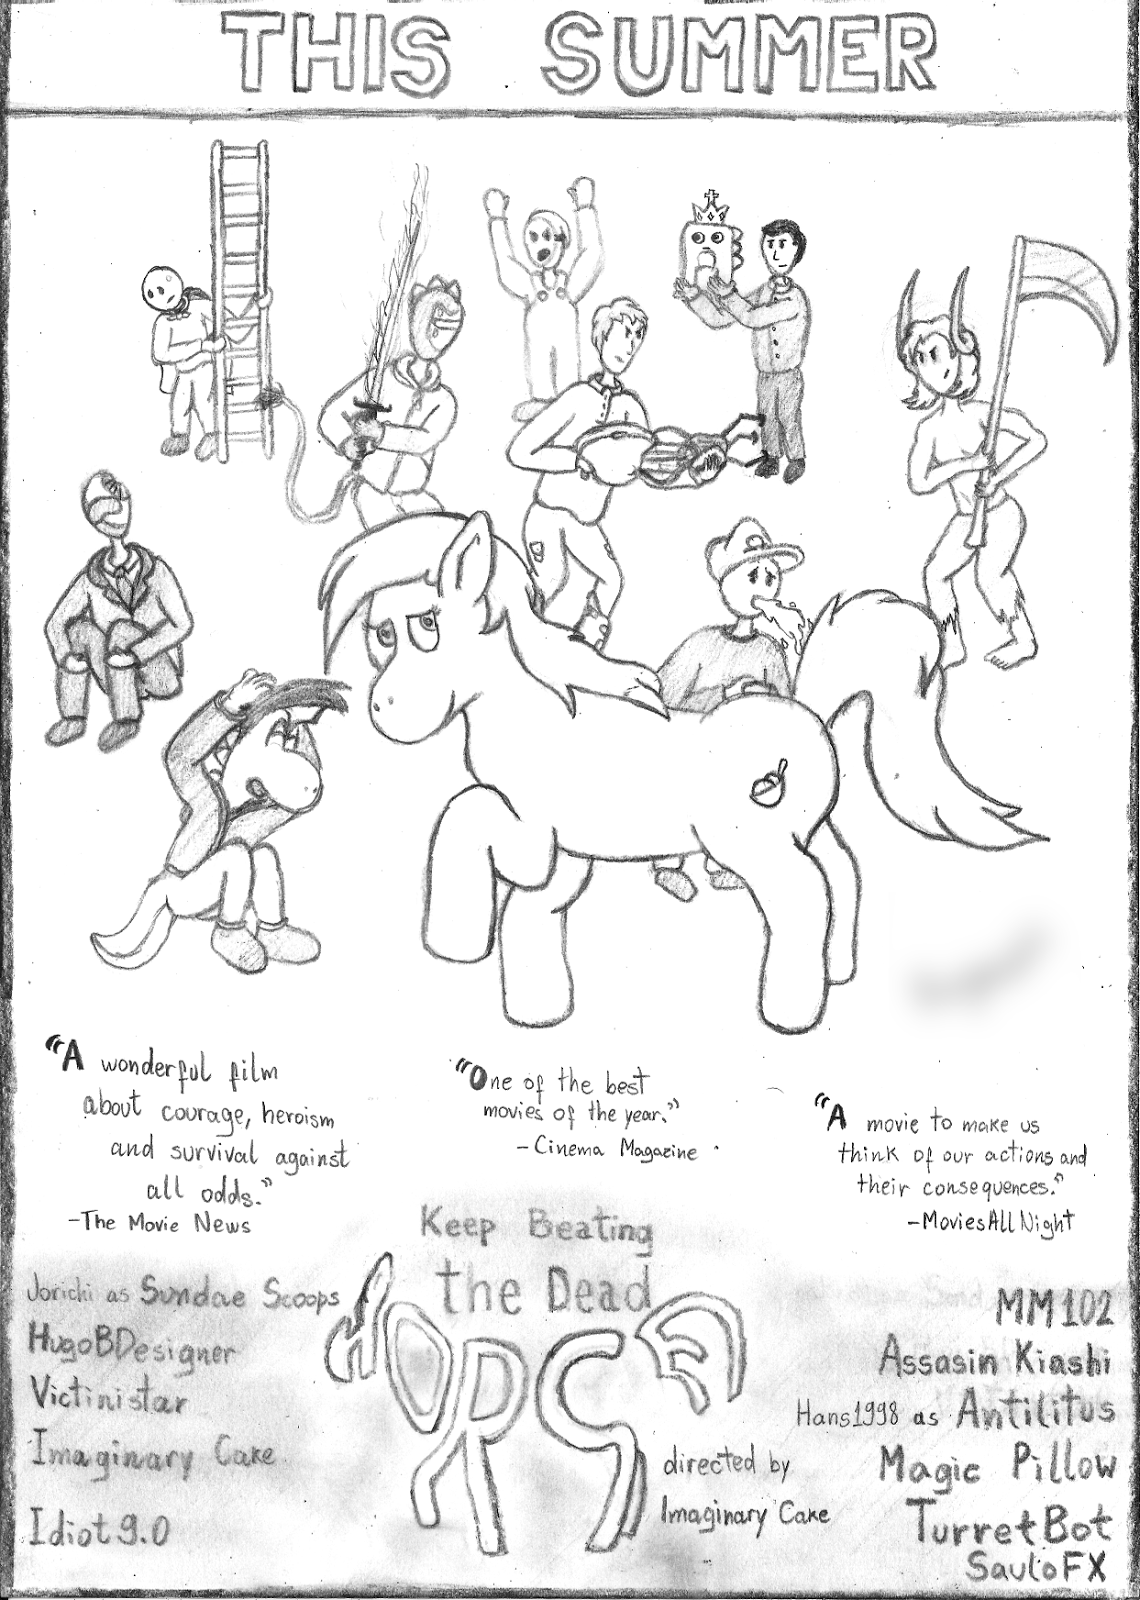 THIS SUMMER
"A wonderful film
about courage, heroism
and survival against
all odds."
-The Movie News
"One of the best
movies of the year."
-Cinema Magazine
"A movie to make us
think of our actions and
their consequences."
-MoviesAllNight
Keep Beating
the Dead
HORSE
Jorichi as Sundae Scoops
HugoBDesigner
Victinistar
Imaginary Cake
Idiot9.0
directed by
Imaginary Cake
MM102
Assasin Kiashi
Hans1998 as Antilitus
Magic Pillow
TurretBot
SauloFX